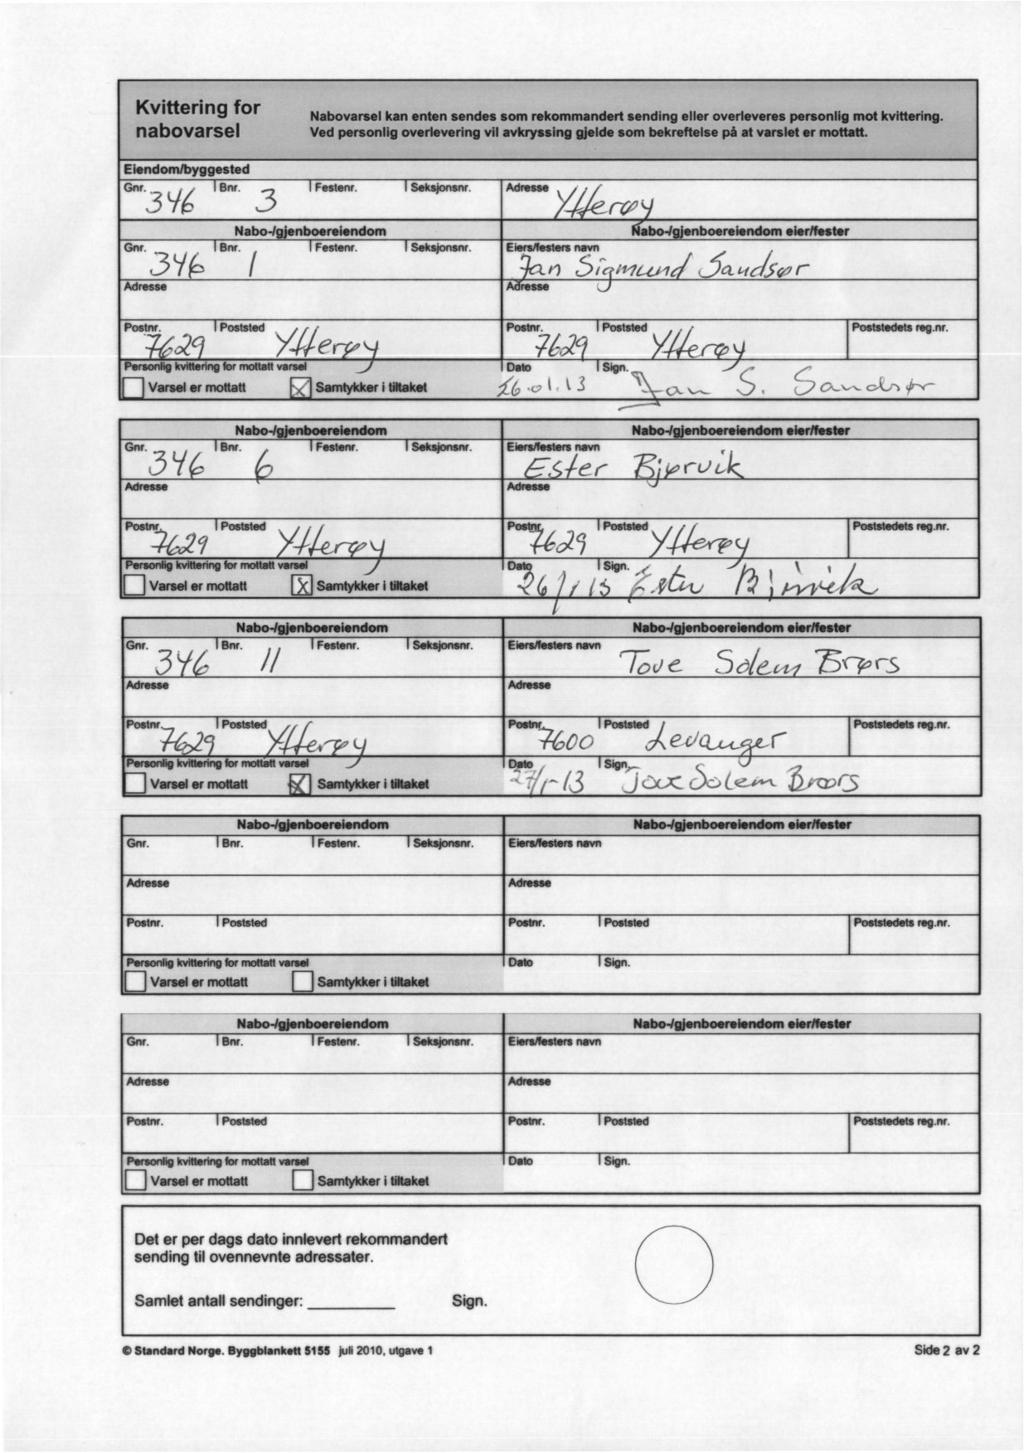 Kvittering for
nabovarsel
Nabovarsel kan enten sendes som rekommandert sending eller overleveres personlig mot kvittering.
Ved personlig overlevering vil avkryssing gjelde som bekreftelse på at varslet er mottatt.
Eiendom/byggested
Gnr. 346 Bnr. 3 Festenr. Seksjonsnr. Adresse Ytterøy
Nabo-/gjenboereiendom Nabo-/gjenboereiendom eier/fester
Gnr. 346 Bnr. 1 Festenr. Seksjonsnr. Eiers/festers navn Jan Sigmund Sandsør
Adresse Adresse
Postnr. 7629 Poststed Ytterøy Postnr. 7629 Poststed Ytterøy Poststedets reg.nr.
Personlig kvittering for mottatt varsel Dato 26.01.13 Sign. Jan S. Sandsør
Varsel er mottatt Samtykker i tiltaket
Nabo-/gjenboereiendom Nabo-/gjenboereiendom eier/fester
Gnr. 346 Bnr. 6 Festenr. Seksjonsnr. Eiers/festers navn Ester Bjørvik
Adresse Adresse
Postnr. 7629 Poststed Ytterøy Postnr. 7629 Poststed Ytterøy Poststedets reg.nr.
Personlig kvittering for mottatt varsel Dato 26/1 13 Sign. Ester Bjørvik
Varsel er mottatt Samtykker i tiltaket
Nabo-/gjenboereiendom Nabo-/gjenboereiendom eier/fester
Gnr. 346 Bnr. 11 Festenr. Seksjonsnr. Eiers/festers navn Tove Solem Brørs
Adresse Adresse
Postnr. 7629 Poststed Ytterøy Postnr. 7600 Poststed Levanger Poststedets reg.nr.
Personlig kvittering for mottatt varsel Dato 27/1-13 Sign. Tove Solem Brørs
Varsel er mottatt Samtykker i tiltaket
Nabo-/gjenboereiendom Nabo-/gjenboereiendom eier/fester
Gnr. Bnr. Festenr. Seksjonsnr. Eiers/festers navn
Adresse Adresse
Postnr. Poststed Postnr. Poststed Poststedets reg.nr.
Personlig kvittering for mottatt varsel Dato Sign.
Varsel er mottatt Samtykker i tiltaket
Nabo-/gjenboereiendom Nabo-/gjenboereiendom eier/fester
Gnr. Bnr. Festenr. Seksjonsnr. Eiers/festers navn
Adresse Adresse
Postnr. Poststed Postnr. Poststed Poststedets reg.nr.
Personlig kvittering for mottatt varsel Dato Sign.
Varsel er mottatt Samtykker i tiltaket
Det er per dags dato innlevert rekommandert
sending til ovennevnte adressater.
Samlet antall sendinger: Sign.
© Standard Norge. Byggblankett 5155 juli 2010, utgave 1 Side 2 av 2